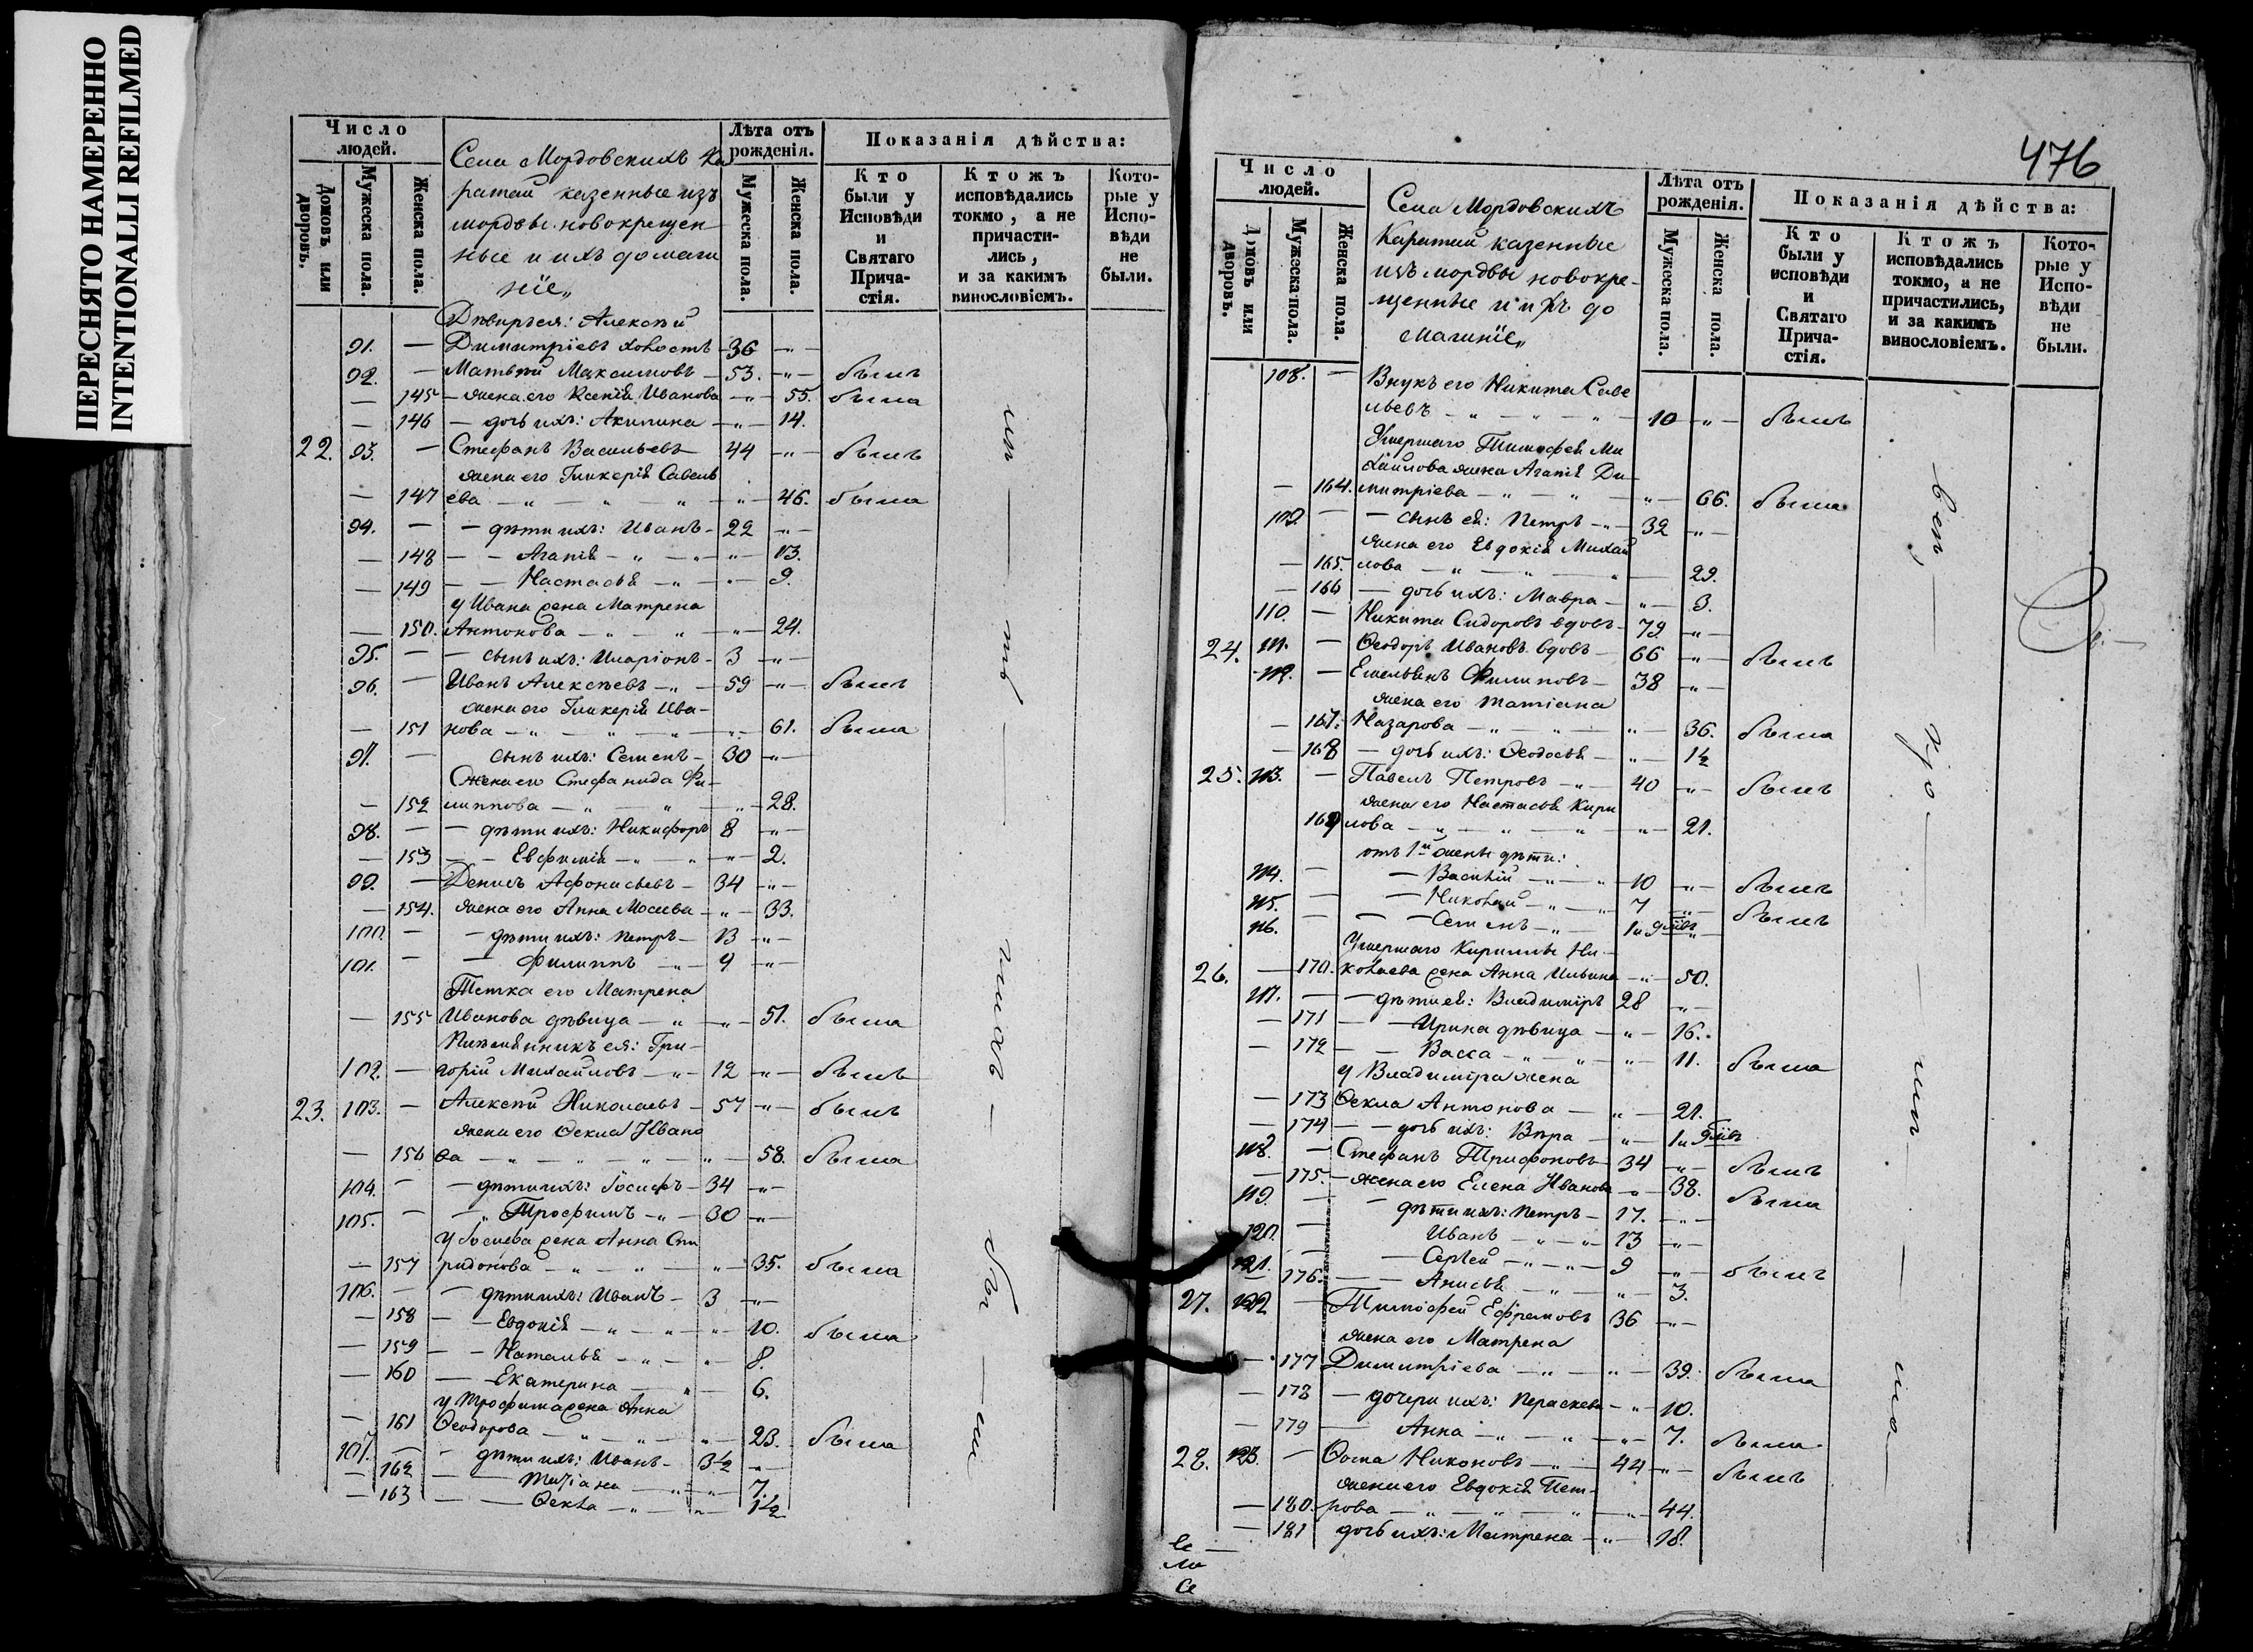 ПЕРЕСНЯТО НАМЕРЕННО
INTENTIONALLI REFILMED
Число людей.
Домовъ или дворовъ.
Мужеска пола.
Женска пола.
Села Мордовскихъ Ка
ратай казенные изъ
мордвы новокрещен
ные и ихъ домаш
ніе„
Лѣта отъ рожденія.
Мужеска пола.
Женска пола.
Показанія дѣйства:
Кто были у Исповѣди и Святаго Прича-стія.
Ктожъ исповѣдались токмо, а не причасти-лись, и за какимъ винословіемъ.
Кото-рые у Испо-вѣди не были.
Алексѣй
91. — Димитріевъ холостъ — 36 — „ —
92. — Матвѣй Максимовъ — 53. — „ — былъ
— 145 — жена его Ксенія Иванова — „ — 55. была
— 146 — дочь ихъ: Акилина — „ — 14.
22. 93. — Стефанъ Васильевъ 44 — „ — былъ
жена его Гликерія Савель
— 147 ева — „ — „ — „ — 46. была
94. — — дѣти ихъ: Иванъ — 22 — „ —
— 148 — — Агапія — „ — „ — 13.
— 149 — — Настасья — „ — „ — 9.
у Ивана жена Матрена
— 150. Антонова — „ — „ — „ — 24.
95. — — сынъ ихъ: Иларіонъ — 3 — „ —
96. — Иванъ Алексѣевъ — „ — 59 — „ — былъ
жена его Гликерія Ива-
— 151 нова — „ — „ — „ — 61. была
97. — сынъ ихъ: Семенъ — 30 — „ —
Жена его Стефанида Фи-
— 152 липпова — „ — „ — „ — 28.
98. — — дѣти ихъ: Никифоръ 8 — „ —
— 153 — — Евфимія — „ — „ — 2.
99. — Денисъ Афонасьевъ — 34 — „ —
— 154. жена его Анна Мосеева — „ — 33.
100. — — дѣти ихъ: Петръ — 13 — „ —
101. — — Филиппъ — „ — 9 — „ —
Тетка его Матрена
— 155 Иванова дѣвица — „ — „ — 51. была
Племянникъ ея: Гри-
102. — горій Михайловъ — „ — 12 — „ — былъ
23. 103. — Алексѣй Николаевъ — 57 — „ — былъ
жена его Ѳекла Ивано
— 156 ва — „ — „ — „ — „ — 58. была
104. — — дѣти ихъ: Іосифъ — 34 — „ —
105. — — „ Трофимъ — „ — 30 — „ —
у Іосифа жена Анна Спи
— 157 ридонова — „ — „ — „ — 35. была
106. — — дѣти ихъ: Иванъ — 3 — „ —
— 158 — — Евдокія — „ — „ — „ — 10. была
— 159 — — Наталья — „ — „ — 8.
— 160 — Екатерина — „ — 6.
у Трофима жена Анна
— 161 Ѳеодорова — „ — „ — „ — 23. была
107. — — дѣти ихъ: Иванъ — 3½ — „ —
— 162 — — Татіана — „ — „ — 7.
— 163 — — Ѳекла — „ — „ — 1½
476
Число людей.
Домовъ или дворовъ.
Мужеска пола.
Женска пола.
Села Мордовскихъ
Каратай казенные
изъ мордвы новокре-
щенные и ихъ до
машніе„
Лѣта отъ рожденія.
Мужеска пола.
Женска пола.
Показанія дѣйства:
Кто были у исповѣди и Святаго Прича-стія.
Ктожъ исповѣдались токмо, а не причастились, и за какимъ винословіемъ.
Кото-рые у Испо-вѣди не были.
108. — Внукъ его Никита Саве
льевъ — „ — „ — „ — 10 — „ — былъ
Умершаго Тимофея Ми
хайлова жена Агапія Ди-
— 164. митріева — „ — „ — „ — 66. была
109. — — сынъ ея: Петръ — „ — 32 — „ —
жена его Евдокія Михай
— 165. лова — „ — „ — „ — 29.
— 166 — дочь ихъ: Мавра — „ — 3.
110. — Никита Сидоровъ вдовъ — 79 — „ —
24. 111. — Ѳеодоръ Ивановъ вдовъ — 66 — „ — былъ
112. — Емельянъ Филиповъ — 38 — „ —
жена его Татіана
— 167. Назарова — „ — „ — „ — 36. была
— 168 — дочь ихъ: Ѳеодосья — „ — 1½
25. 113. — Павелъ Петровъ — „ — 40 — „ — былъ
жена его Настасья Кири
169 лова — „ — „ — „ — „ — 21.
отъ 1й жены дѣти:
114. — — Василій — „ — „ — 10 — „ — былъ
115. — — Николай — „ — „ — 7 — „ — былъ
116. — — Семенъ — „ —
Умершаго Кириллы Ни-
26. — 170. колаева жена Анна Ильина — „ — 50.
117. — — дѣти ея: Владиміръ 28 — „ —
— 171 — — Ирина дѣвица — „ — 16.
— 172 — — Васса — „ — „ — „ — 11. была
у Владиміра жена
— 173 Ѳекла Антонова — „ — 21.
— 174 — — дочь ихъ: Вѣра — „ —
118. — Стефанъ Трифоновъ 34 — „ — былъ
— 175. — жена его Елена Иванова — „ — 38. была
119. — — дѣти ихъ: Петръ — 17. — „ —
120. — Иванъ — „ — „ — 13 — „ —
121. — — Сергей — „ — „ — 9 — „ — былъ
— 176. — — Анисья — „ — „ — 3.
27. 122 — Тимофей Ефремовъ 36 — „ —
жена его Матрена
— 177 Димитріева — „ — „ — 39. была
— 178 — дочери ихъ: Параскева — „ — 10.
— 179 — Анна — „ — „ — „ — 7. была
28. 123. — Ѳома Никоновъ — „ — 44 — „ — былъ
жена его Евдокія Пет-
— 180. рова — „ — „ — „ — „ — 44.
— 181 дочь ихъ: Матрена — „ — 18.